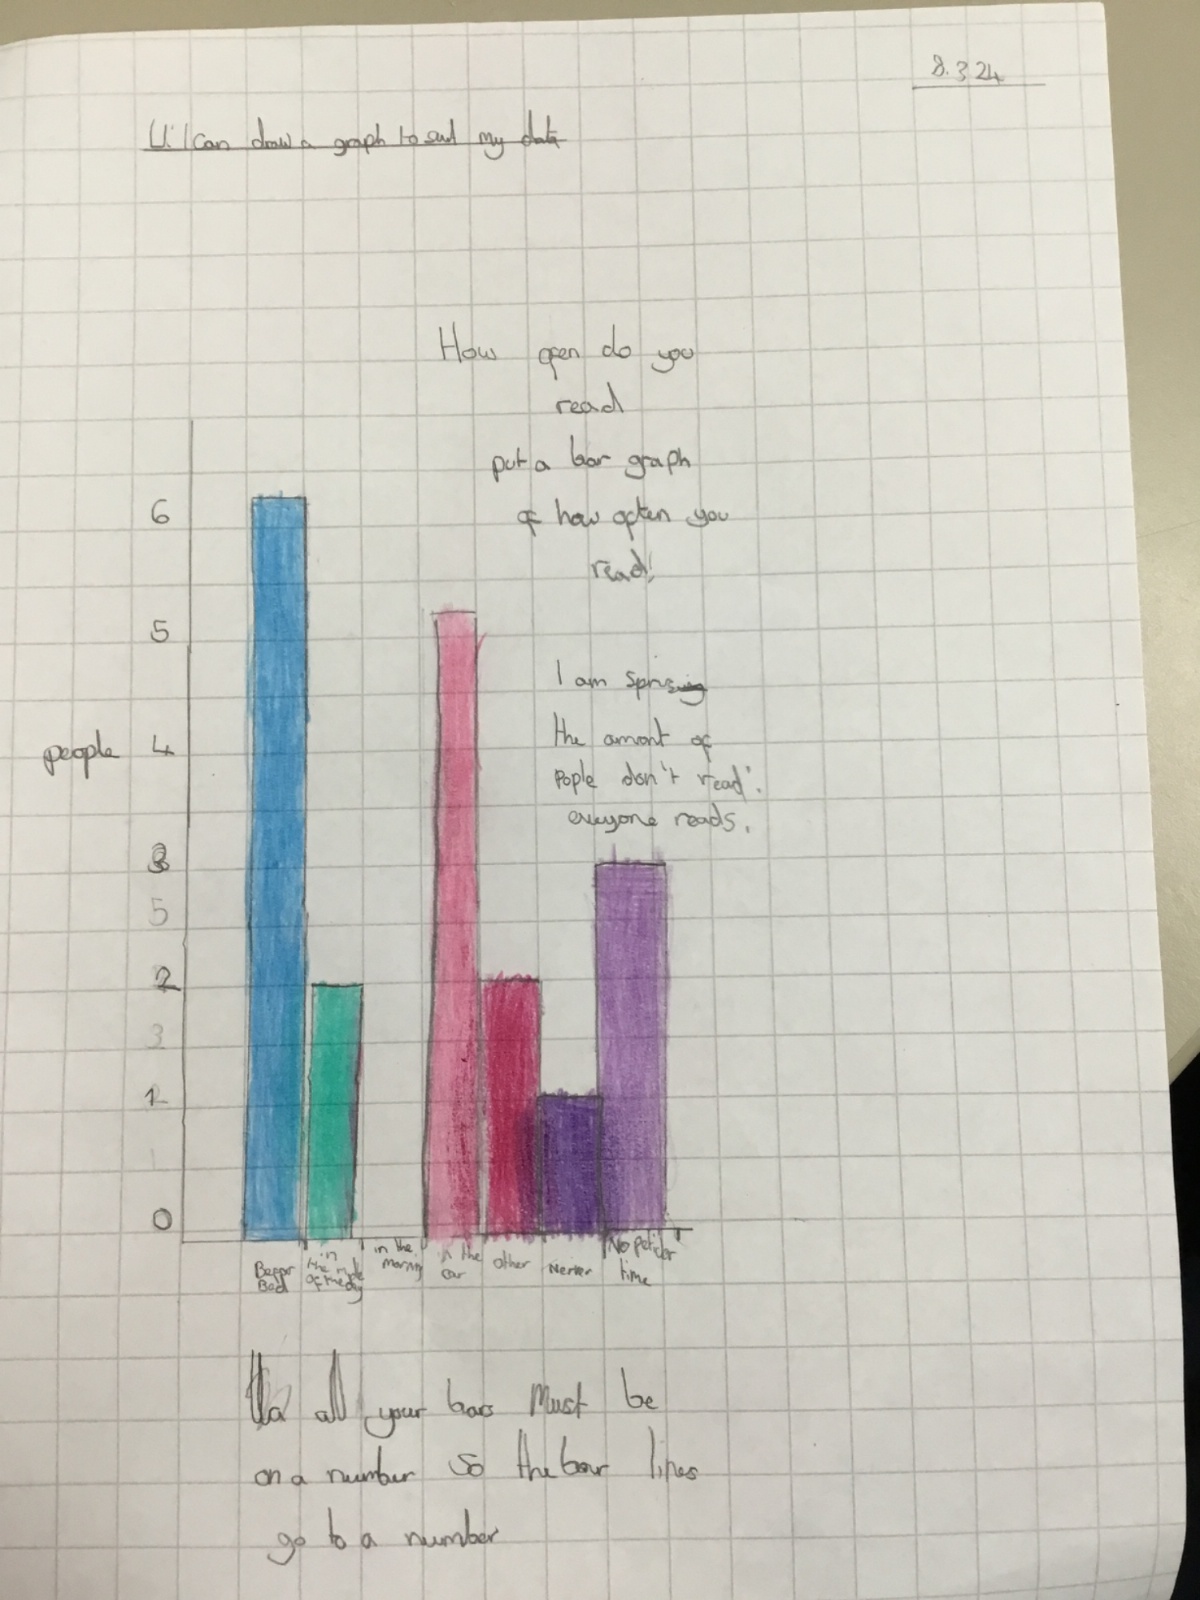 8.3.24
L: I can draw a graph to suit my data
How open do you
read
put a bar graph
of how often you
read!
6
5
I am
people 4
the amont of
pople don't read.
everyone reads.
3
5
2
3
1
1
0
Beffor Bed
in the midle of the day
in the morning
in the car
other
Never
No peticler time
all your bars Must be
on a number so the bar lines
go to a number